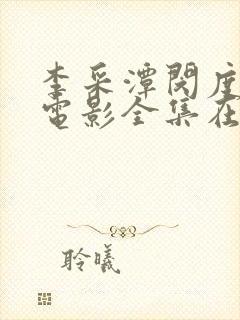 李采潭閔度
電影全集在
聆曦